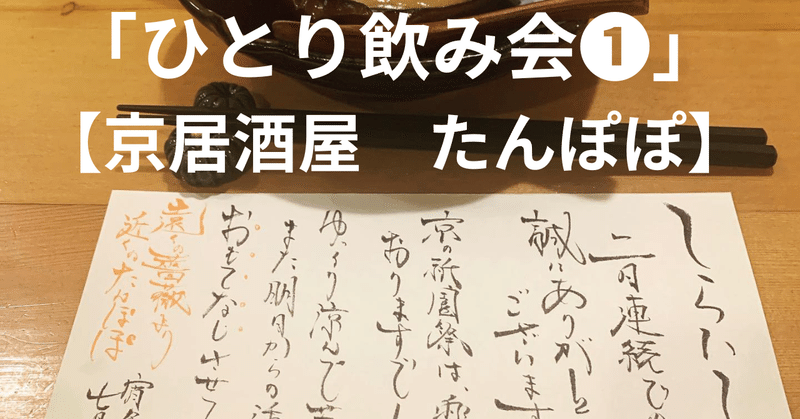 「ひとり飲み会❶」
【京居酒屋　たんぽぽ】
しらいし
二日連続ひ
誠にありがと
ございます
京の祇園祭は、
おりますでし
ゆっくり涼んで
また明日からの
おもてなしさせて
遠くの薔薇より
近くのたんぽぽ
七月